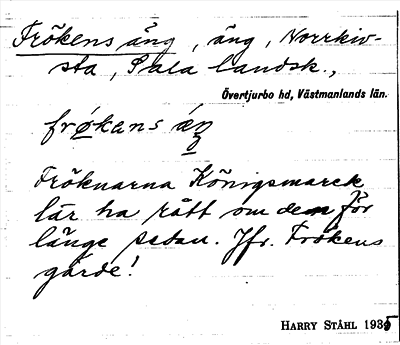 Frökens äng, äng, Norrkiv-
sta, Sala landsk.,
Övertjurbo hd, Västmanlands län.
frökans äŋ
Fröknarna Königsmarck
lär ha rått om dem för
länge sedan. Jfr. Frökens
gärde!
HARRY STÅHL 1935